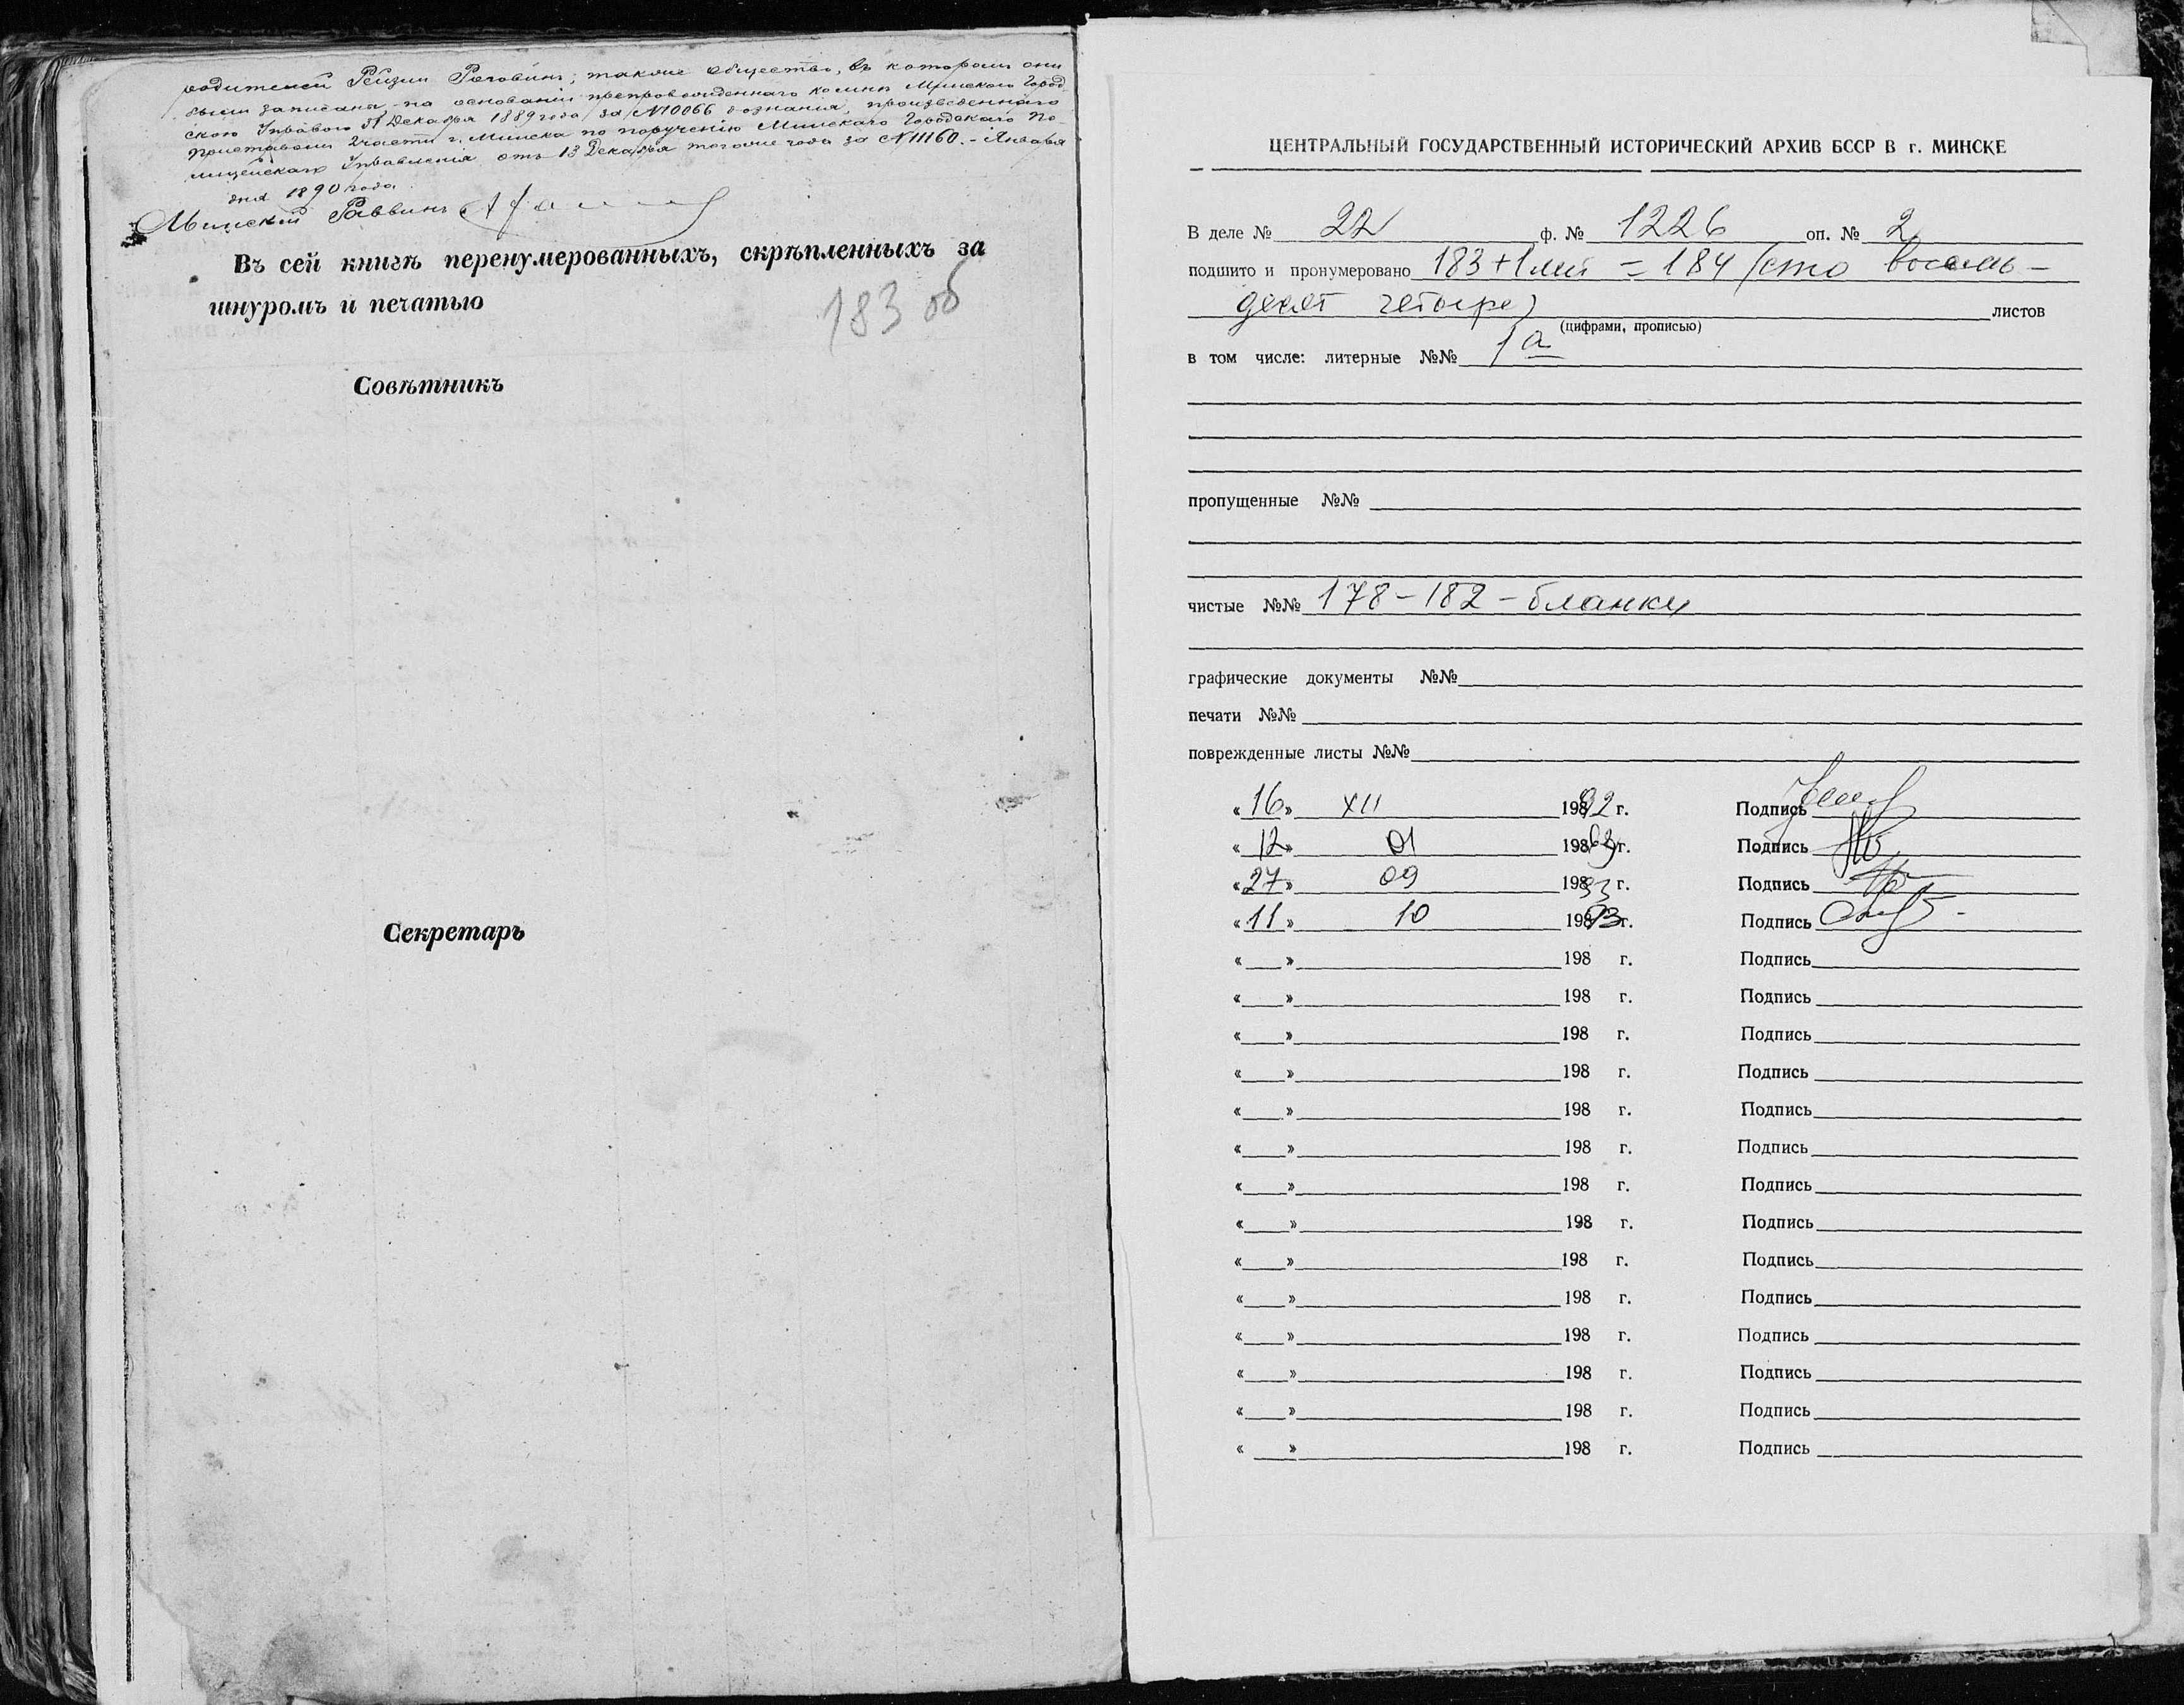 родителей Рейзи Роговинъ; также общество, въ которомъ они
были записаны на основаніи препровожденнаго ко мнѣ Минскою Город
скою Управою 31 Декабря 1889 года за №10066 дознанія, произведеннаго
Приставомъ 2 части г. Минска по порученію Минскаго Городскаго По-
лицейскаго Управленія отъ 13 Декабря того же года за №11160. - Января
дня 1890 года.
Минскій Раввинъ
Въ сей книгѣ перенумерованныхъ, скрѣпленныхъ за
шнуромъ и печатью
183 об
Совѣтникъ
Секретарь
ЦЕНТРАЛЬНЫЙ ГОСУДАРСТВЕННЫЙ ИСТОРИЧЕСКИЙ АРХИВ БССР В г. МИНСКЕ
В деле № 22 ф. № 1226 оп. № 2
подшито и пронумеровано 183+1 лит = 184 (сто восемь-
десят четыре) листов
(цифрами, прописью)
в том числе: литерные №№ 1а
пропущенные №№
чистые №№ 178-182 - бланки
графические документы №№
печати №№
поврежденные листы №№
«16» XII 1992 г. Подпись
«12» 01 198 г. Подпись
«27» 09 1993 г. Подпись
«11» 10 1993 г. Подпись
« » 198 г. Подпись
« » 198 г. Подпись
« » 198 г. Подпись
« » 198 г. Подпись
« » 198 г. Подпись
« » 198 г. Подпись
« » 198 г. Подпись
« » 198 г. Подпись
« » 198 г. Подпись
« » 198 г. Подпись
« » 198 г. Подпись
« » 198 г. Подпись
« » 198 г. Подпись
« » 198 г. Подпись